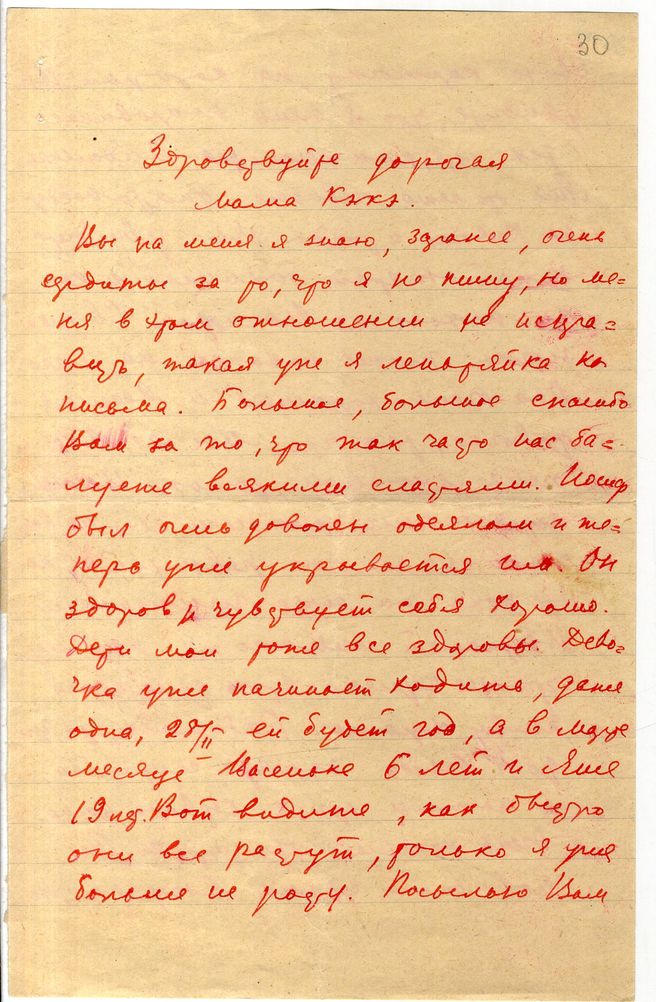 30
Здравствуйте дорогая
мама Кэкэ.
Вы на меня я знаю, заранее, очень
сердиты за то, что я не пишу, но ме=
ня в этом отношении не испра=
вить, такая уже я лентяйка на
письма. Большое, большое спасибо
Вам за то, что так часто нас ба=
луете всякими сластями. Иосиф
был очень доволен одеялом и те=
перь уже укрывается им. Он
здоров и чувствует себя хорошо.
Дети мои тоже все здоровы. Дево=
чка уже начинает ходить, даже
одна, 28/II ей будет год, а в марте
месяце Васеньке 6 лет и Яше
19 лет. Вот видите, как быстро
они все растут, только я уже
больше не расту. Посылаю Вам